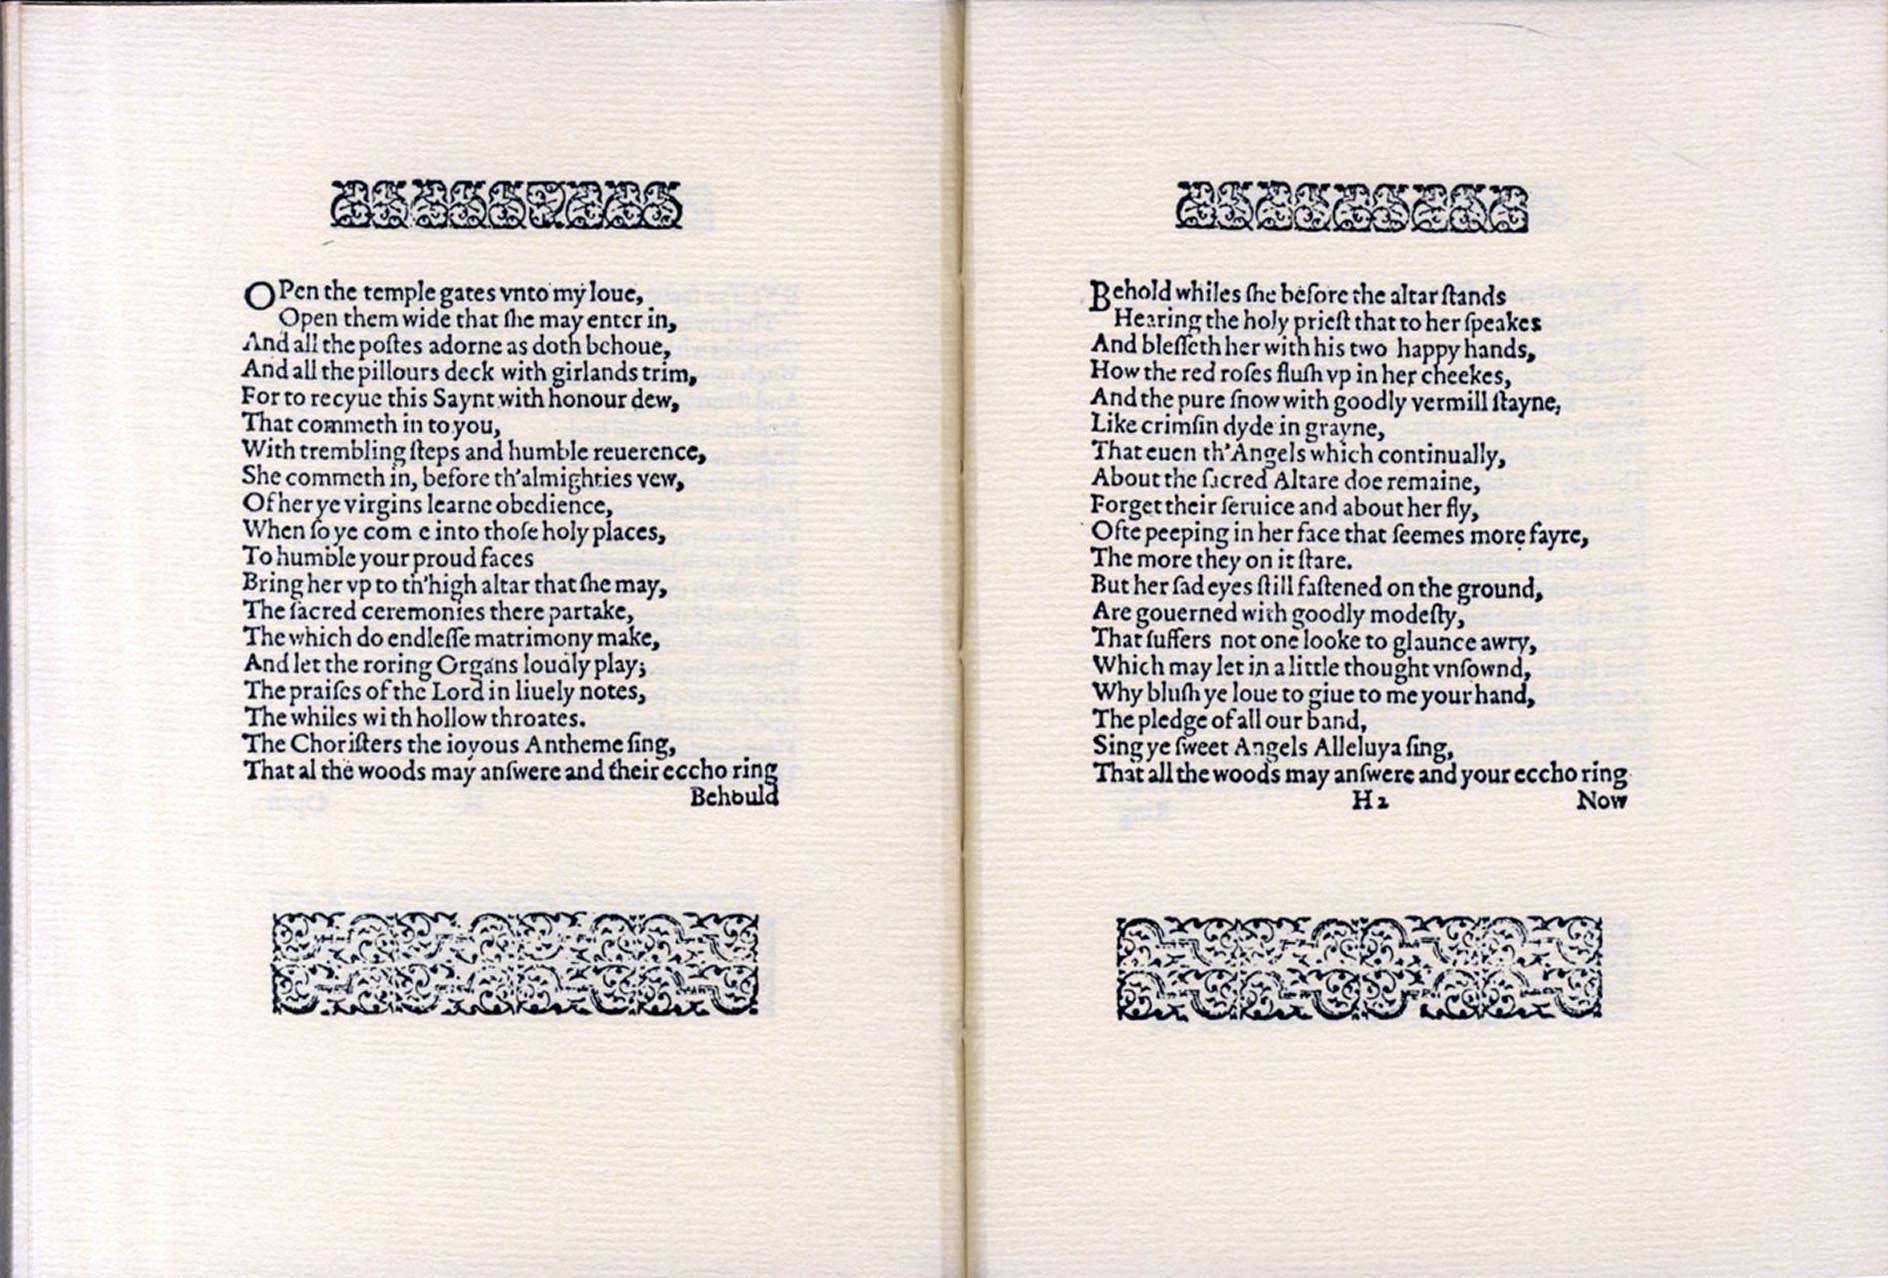 OPen the temple gates vnto my loue,
Open them wide that ſhe may enter in,
And all the poſtes adorne as doth behoue,
And all the pillours deck with girlands trim,
For to recyue this Saynt with honour dew,
That commeth in to you,
With trembling ſteps and humble reuerence,
She commeth in, before th'almighties vew,
Of her ye virgins learne obedience,
When ſo ye com e into thoſe holy places,
To humble your proud faces
Bring her vp to th'high altar that ſhe may,
The ſacred ceremonies there partake,
The which do endleſſe matrimony make,
And let the roring Organs loudly play;
The praiſes of the Lord in liuely notes,
The whiles wi th hollow throates.
The Choriſters the ioyous Antheme ſing,
That al the woods may anſwere and their eccho ring
Behould
Behold whiles ſhe before the altar ſtands
Hearing the holy prieſt that to her ſpeakes
And bleſſeth her with his two happy hands,
How the red roſes fluſh vp in her cheekes,
And the pure ſnow with goodly vermill ſtayne,
Like crimſin dyde in grayne,
That euen th'Angels which continually,
About the ſacred Altare doe remaine,
Forget their ſeruice and about her fly,
Ofte peeping in her face that ſeemes more fayre,
The more they on it ſtare.
But her ſad eyes ſtill faſtened on the ground,
Are gouerned with goodly modeſty,
That ſuffers not one looke to glaunce awry,
Which may let in a little thought vnſownd,
Why bluſh ye loue to giue to me your hand,
The pledge of all our band,
Sing ye ſweet Angels Alleluya ſing,
That all the woods may anſwere and your eccho ring
H2 Now